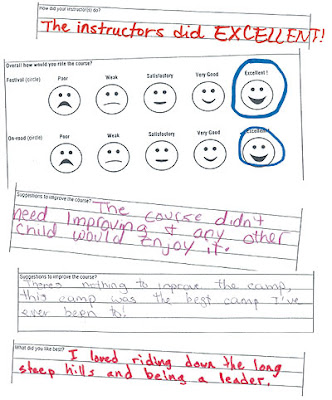 How did your instructor(s) do?
The instructors did EXCELLENT!
Overall how would you rate the course?
Festival (circle) Poor Weak Satisfactory Very Good Excellent!
On-road (circle) Poor Weak Satisfactory Very Good Excellent!
Suggestions to improve the course?
The course didn't
need Improving & any other
child would enjoy it.
Suggestions to improve the course?
There's nothing to improve the camp,
this camp was the best camp I've
ever been to!
What did you like best?
I loved riding down the long
steep hills and being a leader.